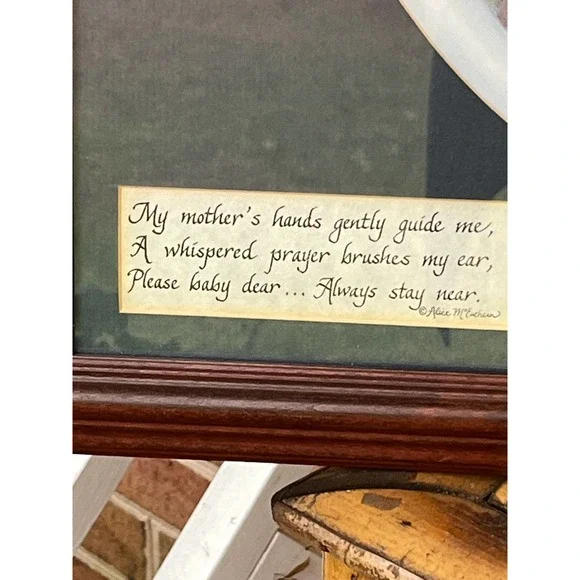 My mother's hands gently guide me,
A whispered prayer brushes my ear,
Please baby dear... Always stay near.
© Alice McEachern